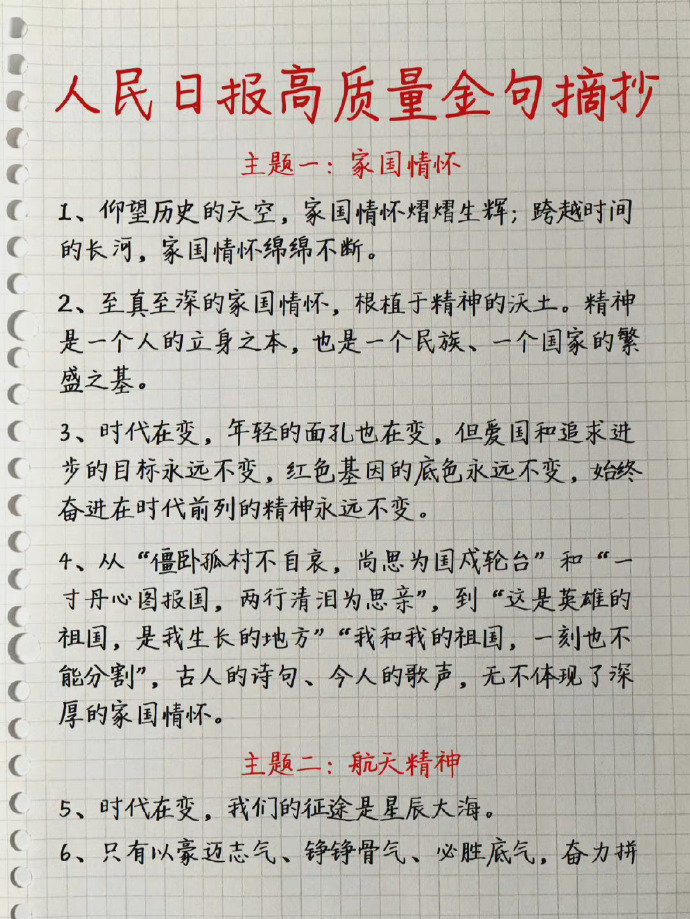 人民日报高质量金句摘抄
主题一：家国情怀
1、仰望历史的天空，家国情怀熠熠生辉；跨越时间
的长河，家国情怀绵绵不断。
2、至真至深的家国情怀，根植于精神的沃土。精神
是一个人的立身之本，也是一个民族、一个国家的繁
盛之基。
3、时代在变，年轻的面孔也在变，但爱国和追求进
步的目标永远不变，红色基因的底色永远不变，始终
奋进在时代前列的精神永远不变。
4、从“僵卧孤村不自哀，尚思为国戍轮台”和“一
寸丹心图报国，两行清泪为思亲”，到“这是英雄的
祖国，是我生长的地方”“我和我的祖国，一刻也不
能分割”，古人的诗句、今人的歌声，无不体现了深
厚的家国情怀。
主题二：航天精神
5、时代在变，我们的征途是星辰大海。
6、只有以豪迈志气、铮铮骨气、必胜底气，奋力拼